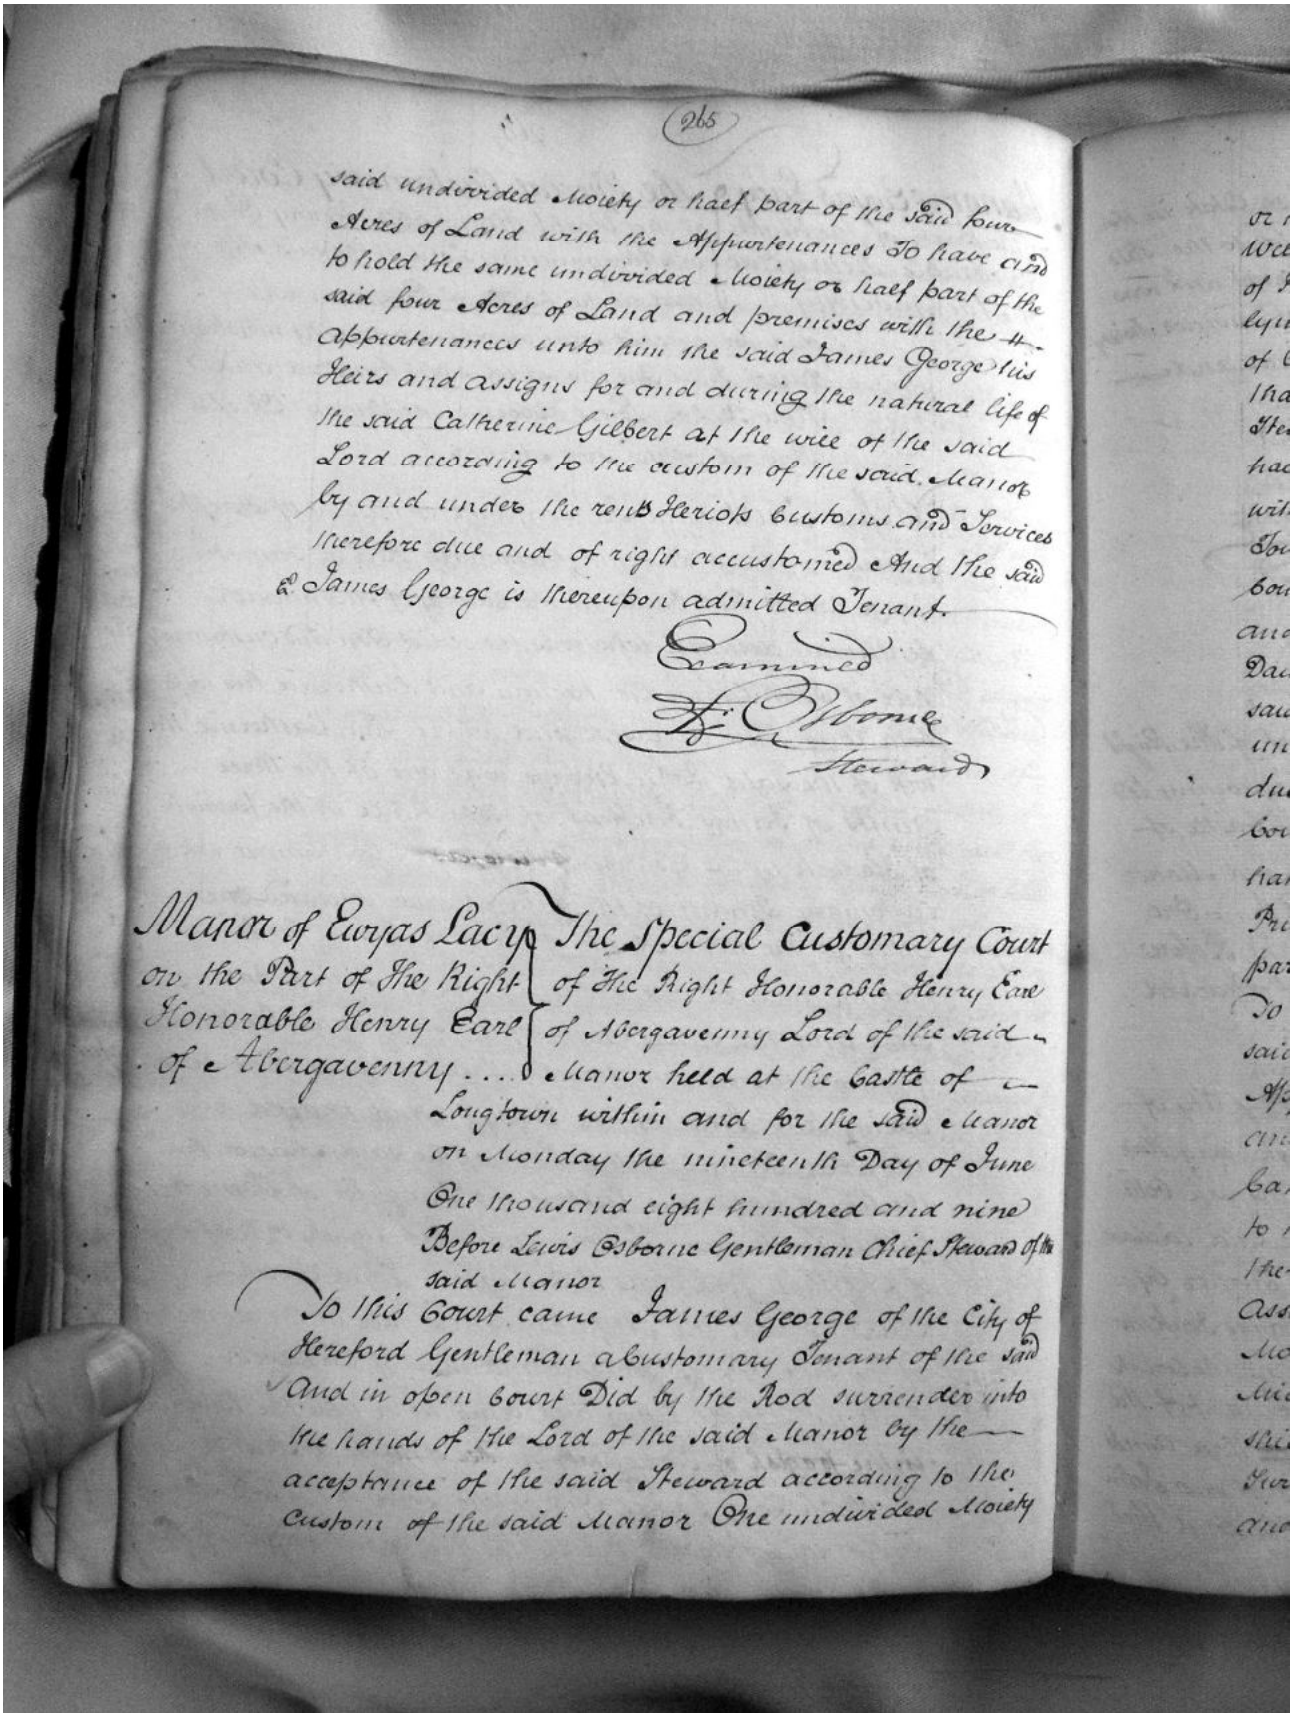 265
said undivided Moiety or half part of the said four
Acres of Land with the Appurtenances To have and
to hold the same undivided Moiety or half part of the
said four Acres of Land and premises with the
appurtenances unto him the said James George his
Heirs and assigns for and during the natural life of
the said Catherine Gilbert at the will of the said
Lord according to the custom of the said Manor
by and under the rents Heriots Customs and Services
therefore due and of right accustomed And the said
James George is thereupon admitted Tenant.
Examined
Ls. Osborne
Steward
Manor of Ewyas Lacy
on the Part of The Right
Honorable Henry Earl
of Abergavenny....
The Special Customary Court
of The Right Honorable Henry Earl
of Abergavenny Lord of the said
Manor held at the Castle of
Longtown within and for the said Manor
on Monday the nineteenth Day of June
One thousand eight hundred and nine
Before Lewis Osborne Gentleman Chief Steward of the
said Manor
To this Court came James George of the City of
Hereford Gentleman a Customary Tenant of the said
And in open Court Did by the Rod surrender into
the hands of the Lord of the said Manor by the
acceptance of the said Steward according to the
custom of the said Manor One undivided Moiety